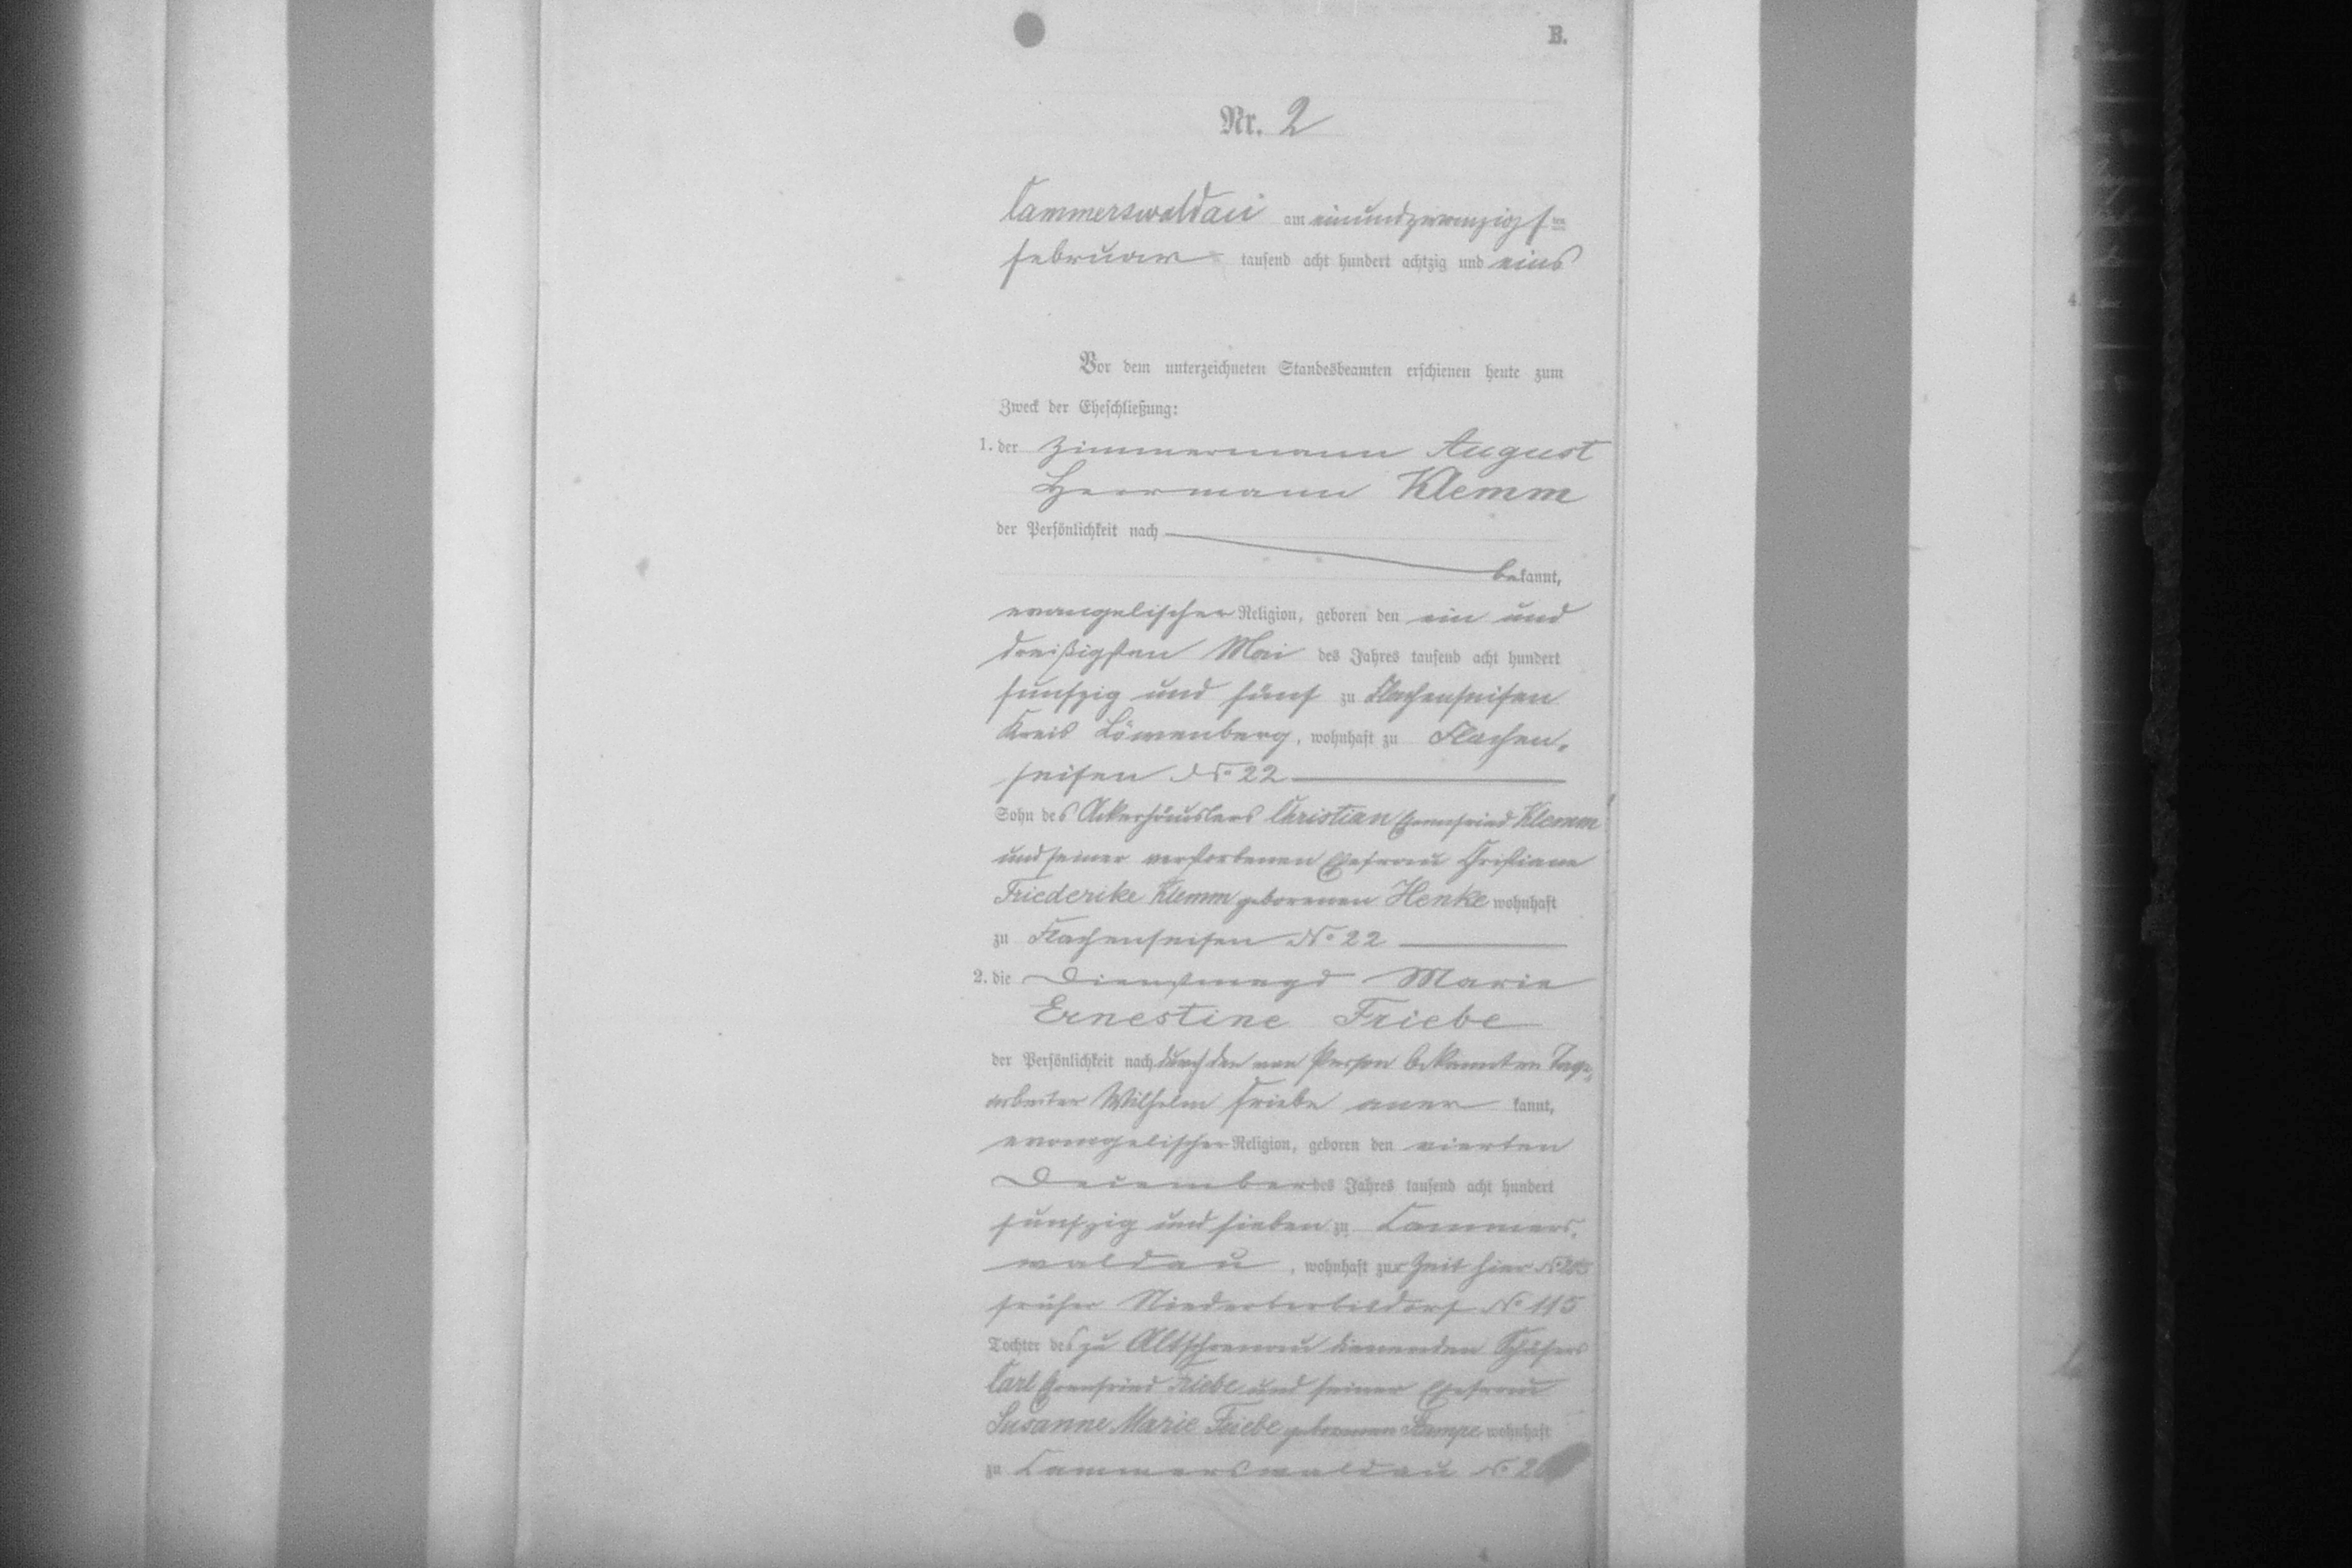 B.
Nr. 2
Cammerswaldau am einundzwanzigsten
Februar tausend acht hundert achtzig und eins
Vor dem unterzeichneten Standesbeamten erschienen heute zum
Zweck der Eheschließung:
1. der Zimmermann August
Herrmann Klemm
der Persönlichkeit nach
bekannt,
evangelischer Religion, geboren den ein und
dreißigsten Mai des Jahres tausend acht hundert
funfzig und fünf zu Flachenseifen
Kreis Löwenberg, wohnhaft zu Flachen-
seifen No 22
Sohn des Ackerhäuslers Christian Ehrenfried Klemm
und seiner verstorbenen Ehefrau Christiane
Friederike Klemm geborenen Henke wohnhaft
zu Flachenseifen No 22
2. die Dienstmagd Marie
Ernestine Friebe
der Persönlichkeit nach durch den von Person bekannten Tage-
arbeiter Wilhelm Friebe aner kannt,
evangelischer Religion, geboren den vierten
December des Jahres tausend acht hundert
funfzig und sieben zu Cammers-
waldau, wohnhaft zur Zeit hier No
früher Niederberbisdorf No 115
Tochter des zu Altschönau dienenden Schäfers
Carl Ehrenfried Friebe und seiner Ehefrau
Susanne Marie Friebe geborenen Stampe wohnhaft
zu Cammerswaldau No